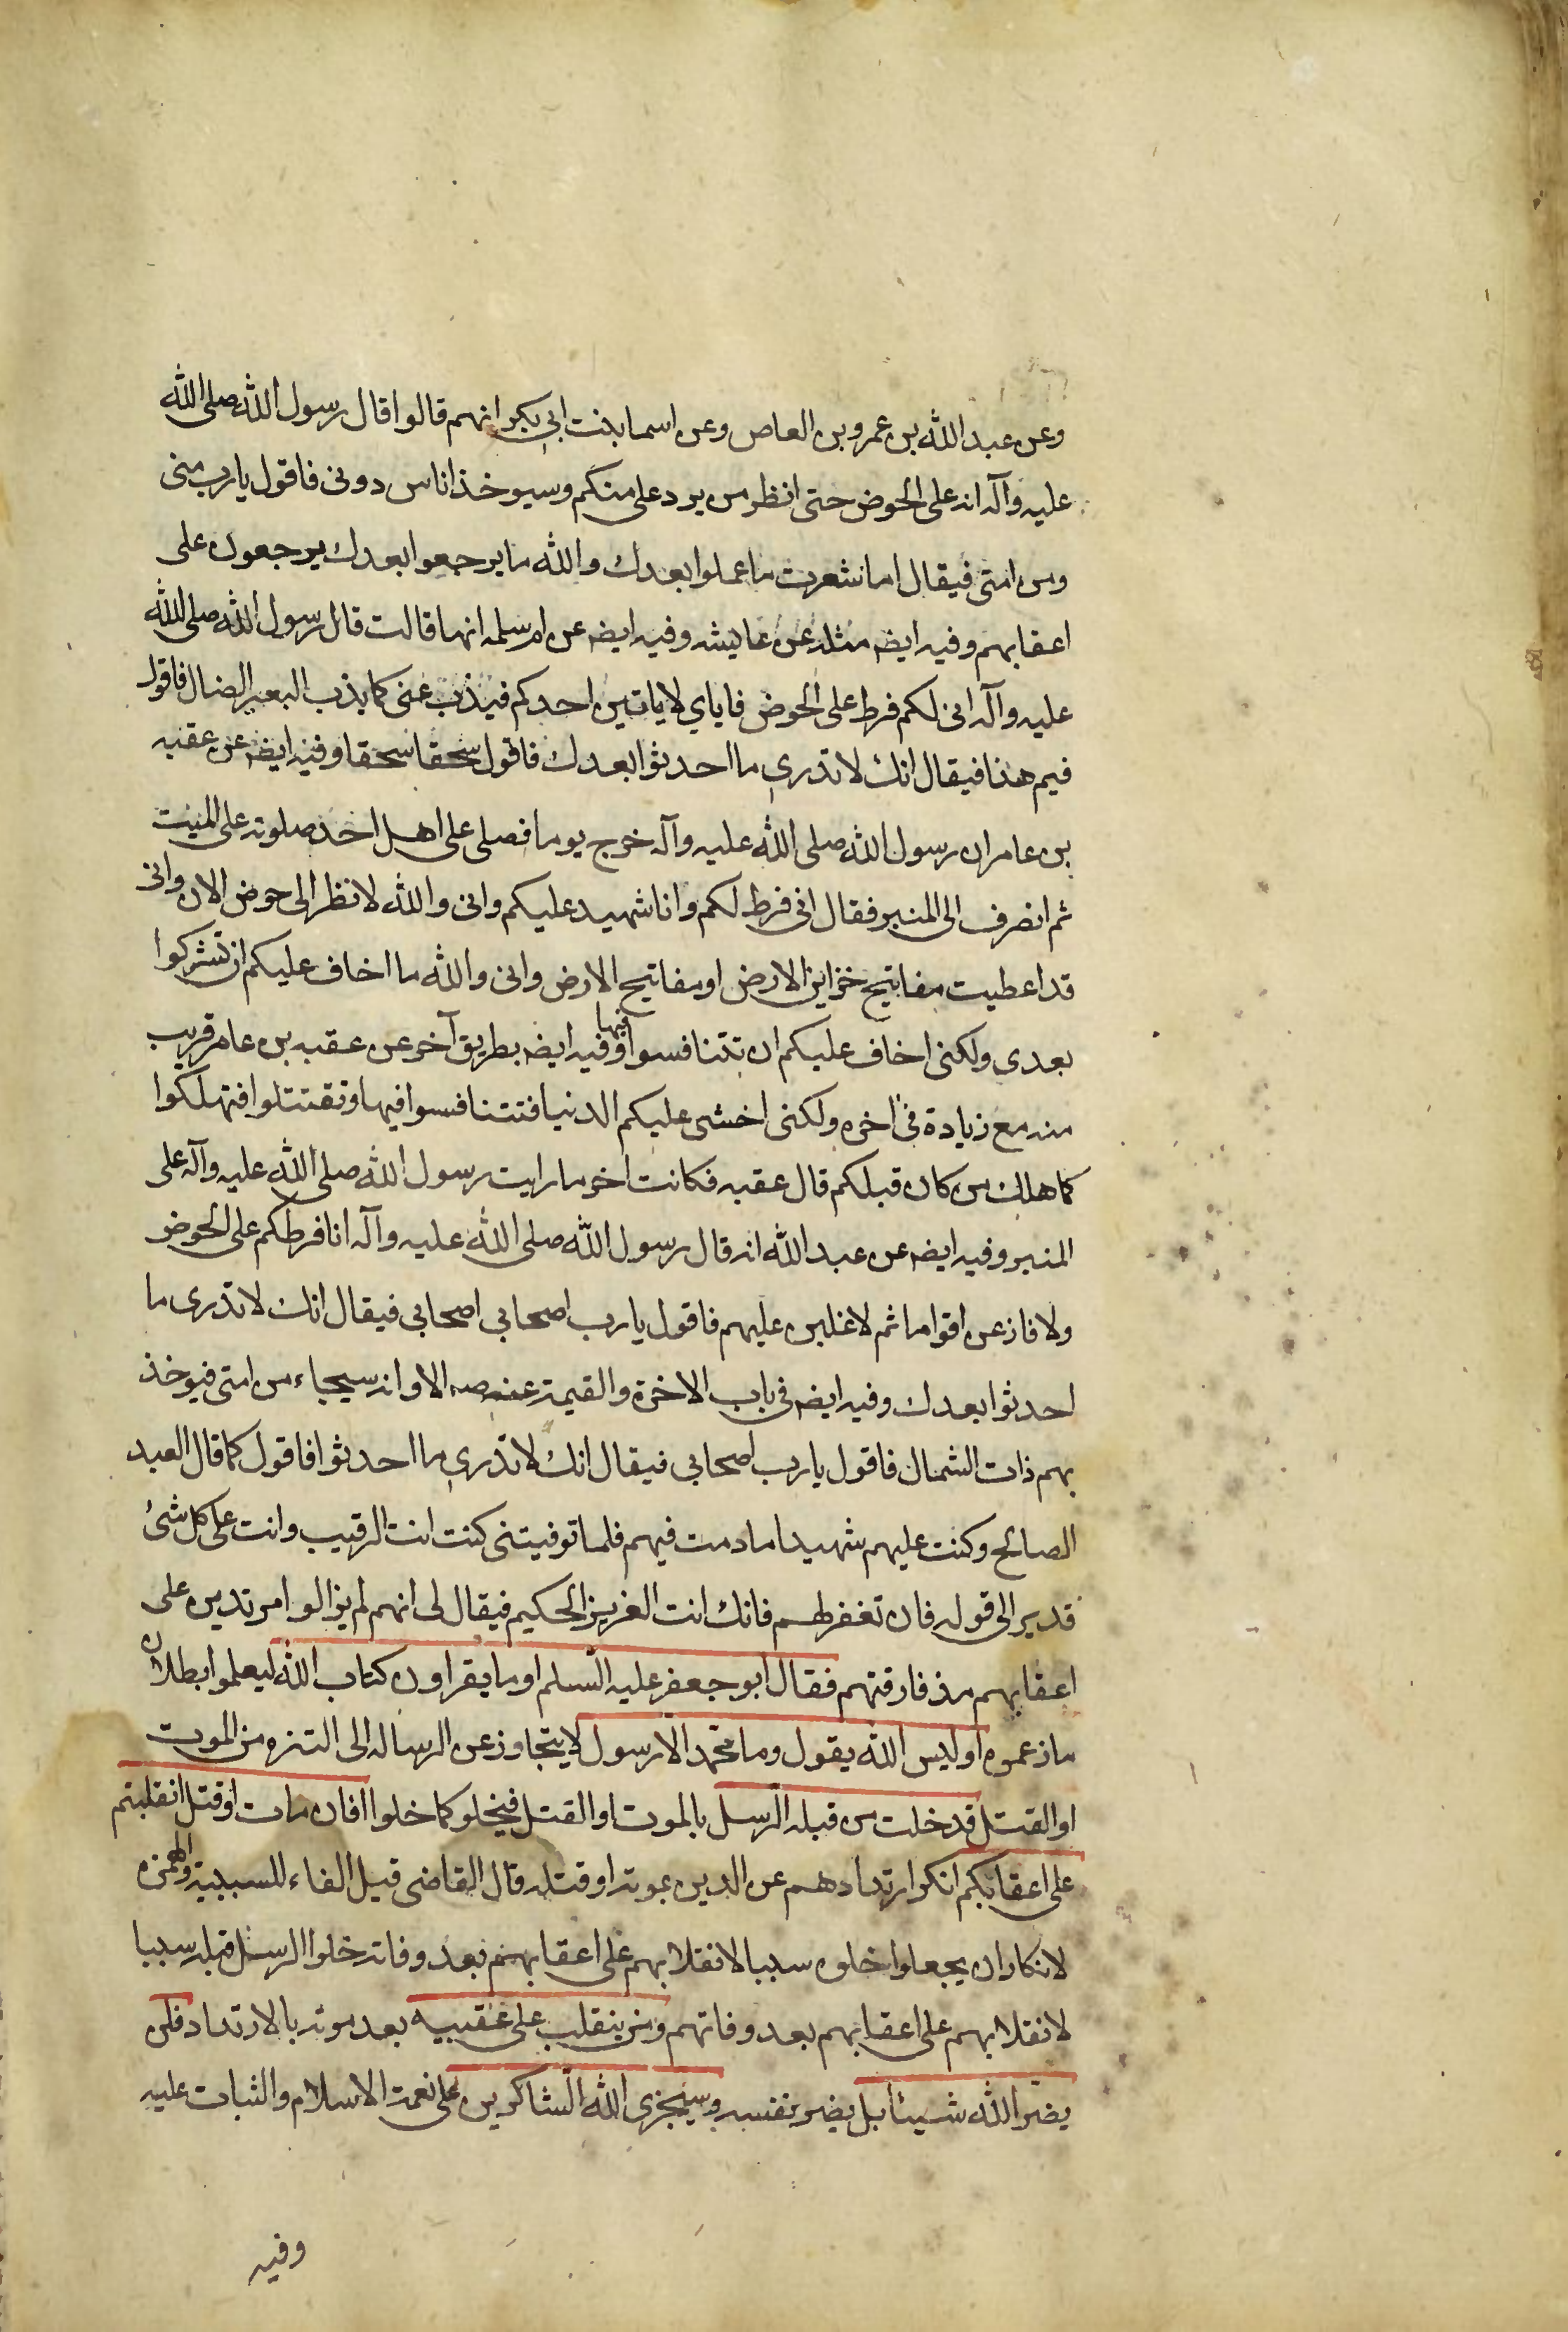 وعن عبد الله بن عمرو بن العاص وعن اسما بنت ابي بكر انهم قالوا قال رسول الله صلى الله
عليه وآله انه على الحوض حتى انظر من يرد على منكم وسيوخذ اناس دونى فاقول يا رب منى
ومن امتى فيقال اما شعرت ما عملوا بعدك والله ما يرجعوا بعدك يرجعون على
اعقابهم وفيه ايضه مثله عن عايشه وفيه ايضه عن ام سلمه انها قالت قال رسول الله صلى الله
عليه وآله انى لكم فرط على الحوض فاياي لا ياتين احدكم فيذب عنى كما يذب البعير الضال فاقول
فيم هذا فيقال انك لا تدرى ما احدثوا بعدك فاقول سحقا سحقا وفيه ايضه عن عقبه
بن عامر ان رسول الله صلى الله عليه وآله خرج يوما فصلى على اهل احد صلوته على الميت
ثم انصرف الى المنبر فقال انى فرط لكم وانا شهيد عليكم وانى والله لا نظر الى حوض الان وانى
قد اعطيت مفاتيح خزاين الارض او مفاتيح الارض وانى والله ما اخاف عليكم ان تشركوا
بعدى ولكنى اخاف عليكم ان تتنافسوا فيها وفيه ايضه بطريق آخر عن عقبه بن عامر قريب
منه مع زيادة في اخره ولكنى اخشى عليكم الدنيا فتتنافسوا فيها وتقتتلوا فتهلكوا
كما هلك من كان قبلكم قال عقبه فكانت اخر ما رايت رسول الله صلى الله عليه وآله على
المنبر وفيه ايضه عن عبد الله انه قال رسول الله صلى الله عليه وآله انا فرطكم على الحوض
ولا فازعن اقواما ثم لاغلبن عليهم فاقول يا رب اصحابي اصحابي فيقال انك لا تدرى ما
احدثوا بعدك وفيه ايضه في باب الاخرة والقيمة عنه صه الا وانه سيجاء من امتى فيوخذ
بهم ذات الشمال فاقول يا رب اصحابي فيقال انك لا تدرى ما احدثوا فاقول كما قال العبد
الصالح وكنت عليهم شهيدا ما دمت فيهم فلما توفيتنى كنت انت الرقيب وانت على كل شئ
قدير الى قوله فان تغفر لهم فانك انت العزيز الحكيم فيقال لى انهم لم يزالوا مرتدين على
اعقابهم مذ فارقتهم فقال ابو جعفر عليه السلم او ما يقراون كتاب الله ليعلموا بطلان
ما زعموه اوليس الله يقول وما محمد الا رسول لا يتجاوز عن الرساله الى التنزه من الموت
او القتل قد خلت من قبله الرسل بالموت او القتل فيخلو كما خلوا افان مات او قتل انقلبتم
على اعقابكم انكر ارتدادهم عن الدين بموته او قتله قال القاضى قيل الفاء للسببية والهمزه
لانكار ان يجعلوا خلوه سببا لانقلابهم على اعقابهم بعد وفاته خلوا الرسل قبله سببا
لانقلابهم على اعقابهم بعد وفاتهم ومن ينقلب على عقبيه بعد موته بالارتداد فلن
يضر الله شيئا بل يضر نفسه وسيجزى الله الشاكرين على نعمة الاسلام والثبات عليه
وفيه